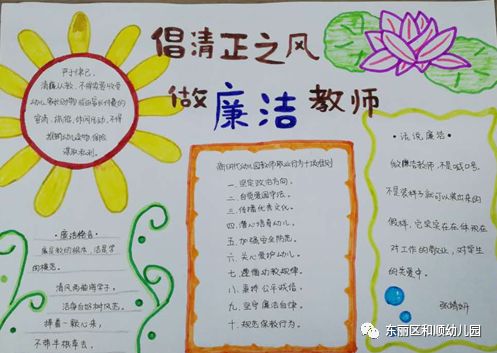 倡清正之风
做廉洁教师
严于律己,
清廉从教,不得索要收受
幼儿家长财物或由家长付费的
宴请、旅游、休闲活动,不得
谋取私利。
新时代幼儿园教师职业行为十项准则
一.坚定政治方向。
二.自觉爱国守法。
三.传播优秀文化。
四.潜心培育幼儿。
五.加强安全防范。
六.关心爱护幼儿。
七.遵循幼教规律。
八.秉持公平诚信。
九.坚守廉洁自律。
十.规范保教行为。
·话说廉洁·
做廉洁教师,不是喊口号,
不是装样子就可以装出来的
假样,它实实在在体现在
对工作的敬业,对学生
的关爱中。
张婧妍
·廉洁格言·
清风两袖
捧着一颗心来,
不带半根草去。
东丽区和顺幼儿园